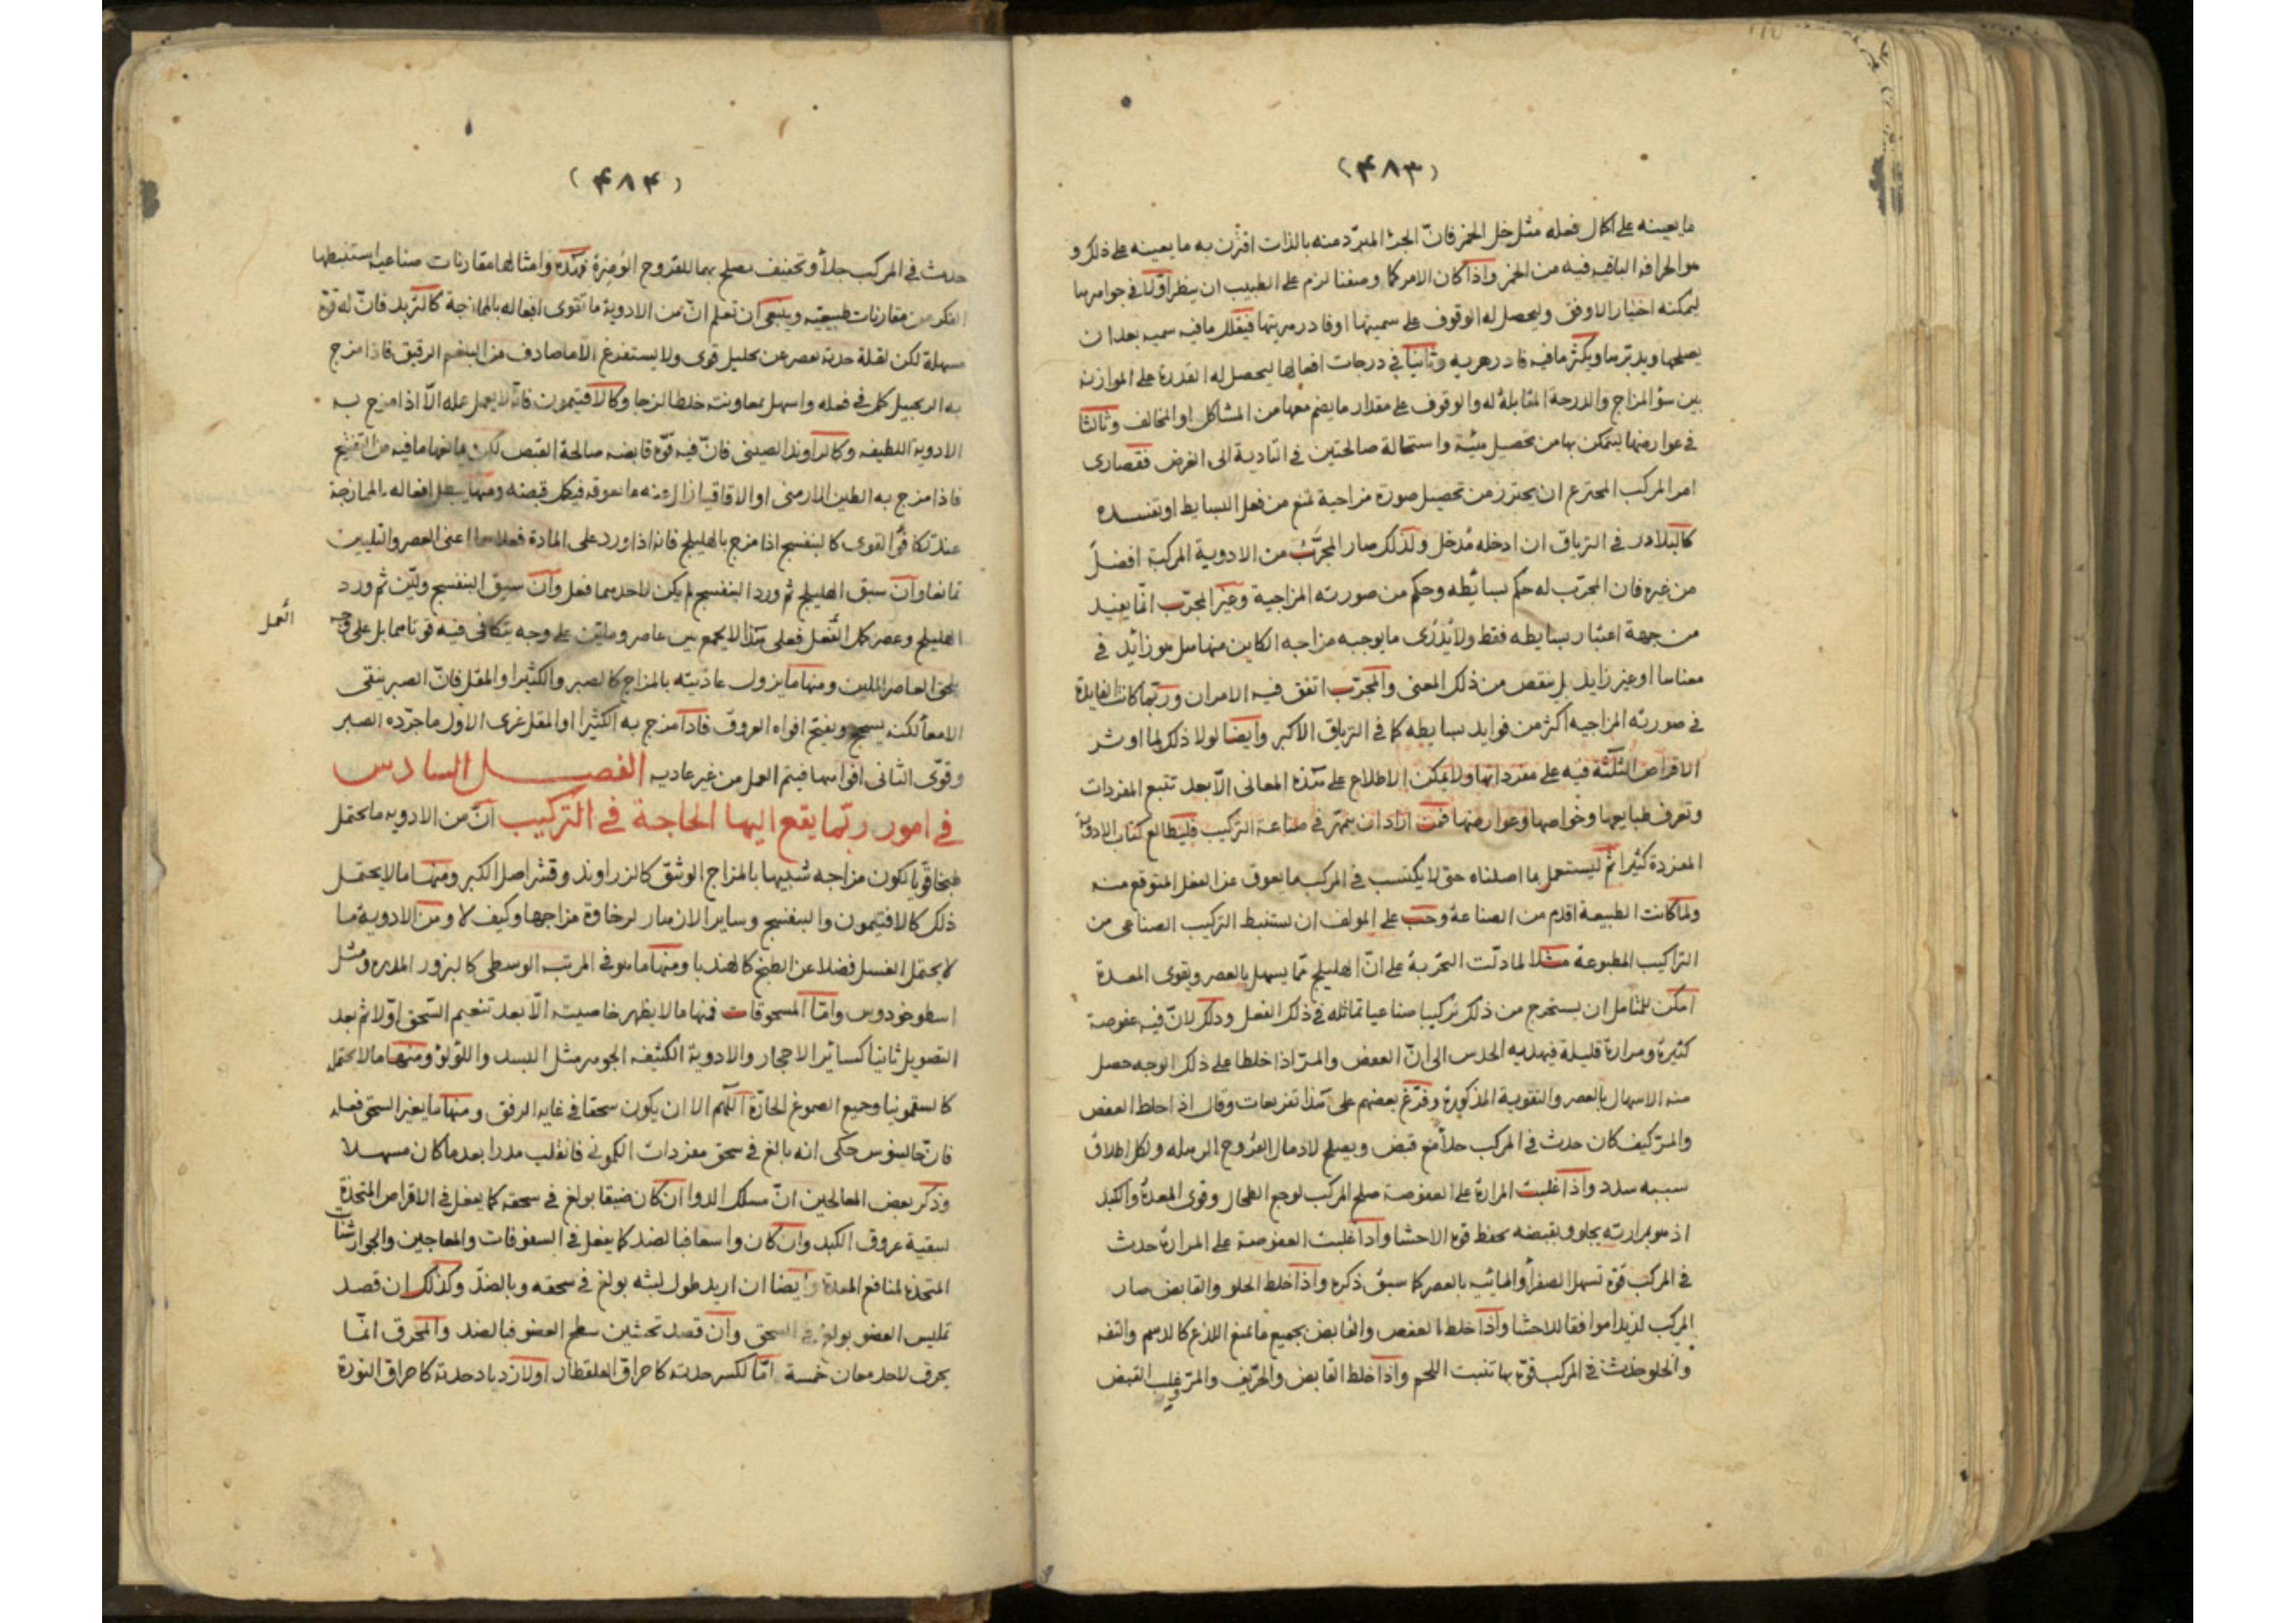 (۴۸۳)
ما يعينه على اكمال فعله مثل خل الخمر فانّ الجزء المبرّد منه بالذات اقترن به ما يعينه على ذلك و
هو الحرافه الباقيه فيه من الخمر واذا كان الامر كما وصفنا لزم على الطبيب ان ينظر اوّلا فى جواهرها
ليمكنه اختيار الاوفق وليحصل له الوقوف على سميتها او فادزهريتها فيقلل ما فيه سميه بعد ان
يصلحها ويدبرها ويكثر ما فيه فادزهريه وثانيا فى درجات افعالها ليحصل له القدرة على الموازنة
بين سؤ المزاج والدرجة المقابلة له والوقوف على مقدار ما يضم معها من المشاكل او المخالف وثالثا
فى عوارضها ليتمكن بها من تحصيل هيئة واستحالة صالحتين فى التادية الى الغرض فقصارى
امر المركب المخترع ان يحترز من تحصيل صورة مزاجية تمنع من فعل البسايط او تفسده
كالبلادر فى الترياق ان ادخله مُدخل ولذلك صار المجرَّب من الادوية المركبة افضل
من غيره فان المجرّب له حكم بسائطه وحكم من صورته المزاجية وغير المجرّب انّما يفيد
من جهة اعتبار بسايطه فقط ولا يُدْرى ما يوجبه مزاجه الكاين منها هل هو زائد فى
معناها او غير زايد بل ينقص من ذلك المعنى والمجرّب اتفق فيه الامران وربّما كانت الفايدة
فى صورته المزاجيه اكثر من فوايد بسايطه كما فى الترياق الاكبر وايضا لولا ذلك لما اوثر
الاقراص الثلثة فيه على مفرداتها ولا يمكن الاطلاع على هذه المعانى الّا بعد تتبع المفردات
وتعرف طبايعها وخواصها وعوارضها فمن اراد ان يتمهر فى صناعة التركيب فليطالع كتاب الادوية
المفردة كثيرا ثم ليستعمل ما اصلناه حتى لا يكتسب فى المركب ما يعوق عن الفعل المتوقع منه
ولما كانت الطبيعة اقدم من الصناعة وجب على المولف ان يستنبط التركيب الصناعى من
التراكيب المطبوعة مثلا لما دلّت التجربة على انّ الهليلج ممّا يسهل بالعصر ويقوى المعدة
امكن للمتامل ان يستخرج من ذلك تركيبا صناعيا يماثله فى ذلك الفعل وذلك لانّ فيه عفوصة
كثيرة ومرارة قليلة فيهديه الحدس الى انّ العفص والمرّ اذا خلطا على ذلك الوجه حصل
منه الاسهال بالعصر والتقوية المذكورة وفرّع بعضهم على هذا تفريعات وقال اذا خلط العفص
والمرّ كيف كان حدث فى المركب جلأ مع قبض ويصلح لادمال القروح الرهله ولكل اطلاق
سببه سدد واذا غلبت المرارة على العفوصة صلح المركب لوجع الطحال وقوى المعدة والكبد
اذ هو بمرارته يجلو وبقبضه يحفظ قوة الاحشا واذا غلبت العفوصة على المرارة حدث
فى المركب قوّة تسهل الصفرأ والمائية بالعصر كما سبق ذكره واذا خلط الحلو والقابض صار
المركب لذيذا موافقا للاحشا واذا خلط العفص والقابض بجميع ما يمنع اللذع كالدسم والتفه
والحلو حدث فى المركب قوّة بها تنبت اللحم واذا خلط القابض والحرّيف والمرّ وغلب القبض
(۴۸۴)
حدث فى المركب جلأ وتجفيف يصلح بهما للقروح الوضرة فهذه وامثالها مقارنات صناعية استنبطها
الفكر من مقارنات طبيعيه وينبغى ان تعلم انّ من الادوية ما تقوى افعاله بالممازجة كالتربد فانّ له قوّة
مسهلة لكن لقلة حدته يعصر عن تحليل قوى ولا يستفرغ الا ما صادف من البلغم الرقيق فاذا مزج
به الزنجبيل كمل فى فعله واسهل بمعاونته خلطا لزجا وكالافتيمون فانّه لا يعمل عمله الّا اذا مزج به
الادوية اللطيفه وكالراوند الصينى فانّ فيه قوّة قابضه صالحة القبض لكن يمانعها ما فيه من التفتيح
فاذا مزج به الطين الارمنى او الاقاقيا زال عنه ما يعوقه فيكمل قبضه ومنها يبطل افعاله بالممازجة
عند تكافؤ القوى كالبنفسج اذا مزج بالهليلج فانه اذا ورد على المادة فعلاهما اعنى العصر والتليين
تمانعا وان سبق الهليلج ثم ورد البنفسج لم يكن لاحدهما فعل وان سبق البنفسج وليّن ثم ورد
الهليلج وعصر كمل الفعل فعلى هذا لا يجمع بين عاصر وملين على وجه يتكافى فيه قوتاهما بل على وجه
العمل
يلحق العاصر الملين ومنها ما يزول عاديته بالمزاج كالصبر والكثيرا والمقل فانّ الصبر ينقى
الامعا لكنه يسحج ويفتح افواه العروق فاذا مزج به الكثيرا او المقل غرى الاول ما جرده الصبر
وقوّى الثانى افواهها فيتم العمل من غير عاديه الفصل السادس
فى امور ربّما يقع اليها الحاجة فى التركيب انّ من الادويه ما يحتمل
طبخا قويا لكون مزاجه شبيها بالمزاج الوثيق كالزراوند وقشر اصل الكبر ومنها ما لا يحتمل
ذلك كالافتيمون والبنفسج وساير الازهار لرخاوة مزاجها وكيف لا ومن الادوية ما
لا يحتمل الغسل فضلا عن الطبخ كالهندبا ومنها ما هو فى المرتبة الوسطى كالبزور المدره ومثل
اسطوخودوس وامّا المسحوقات فمنها ما لا يظهر خاصيته الّا بعد تنعيم السّحق اوّلا ثم بعد
التصويل ثانيا كسائر الاحجار والادوية الكثيفه الجوهر مثل البسد واللؤلؤ ومنها ما لا يحتمل
كالسقمونيا وجميع الصموغ الحارّة اللّهم الا ان يكون سحقا فى غايه الرفق ومنها ما يغير السحق فعله
فانّ جالينوس حكى انه بالغ فى سحق مفردات الكمونى فانقلب مدرا بعد ما كان مسهلا
وذكر بعض المعالجين انّ مسلك الدوا ان كان ضيقا بولغ فى سحقه كما يفعل فى الاقراص المتخذة
لتنقية عروق الكبد وان كان واسعا فبالضد كما يفعل فى السفوفات والمعاجين والجوارشنات
المتخذة لمنافع المعدة وايضا ان اريد طول لبثه بولغ فى سحقه وبالضدّ وكذلك ان قصد
تمليس العضو بولغ فى السحق وان قصد تخشين سطح العضو فبالضد والمحرق انّما
يحرق لاحد معان خمسة امّا لكسر حدته كاحراق القلقطار او لازدياد حدته كاحراق النورة